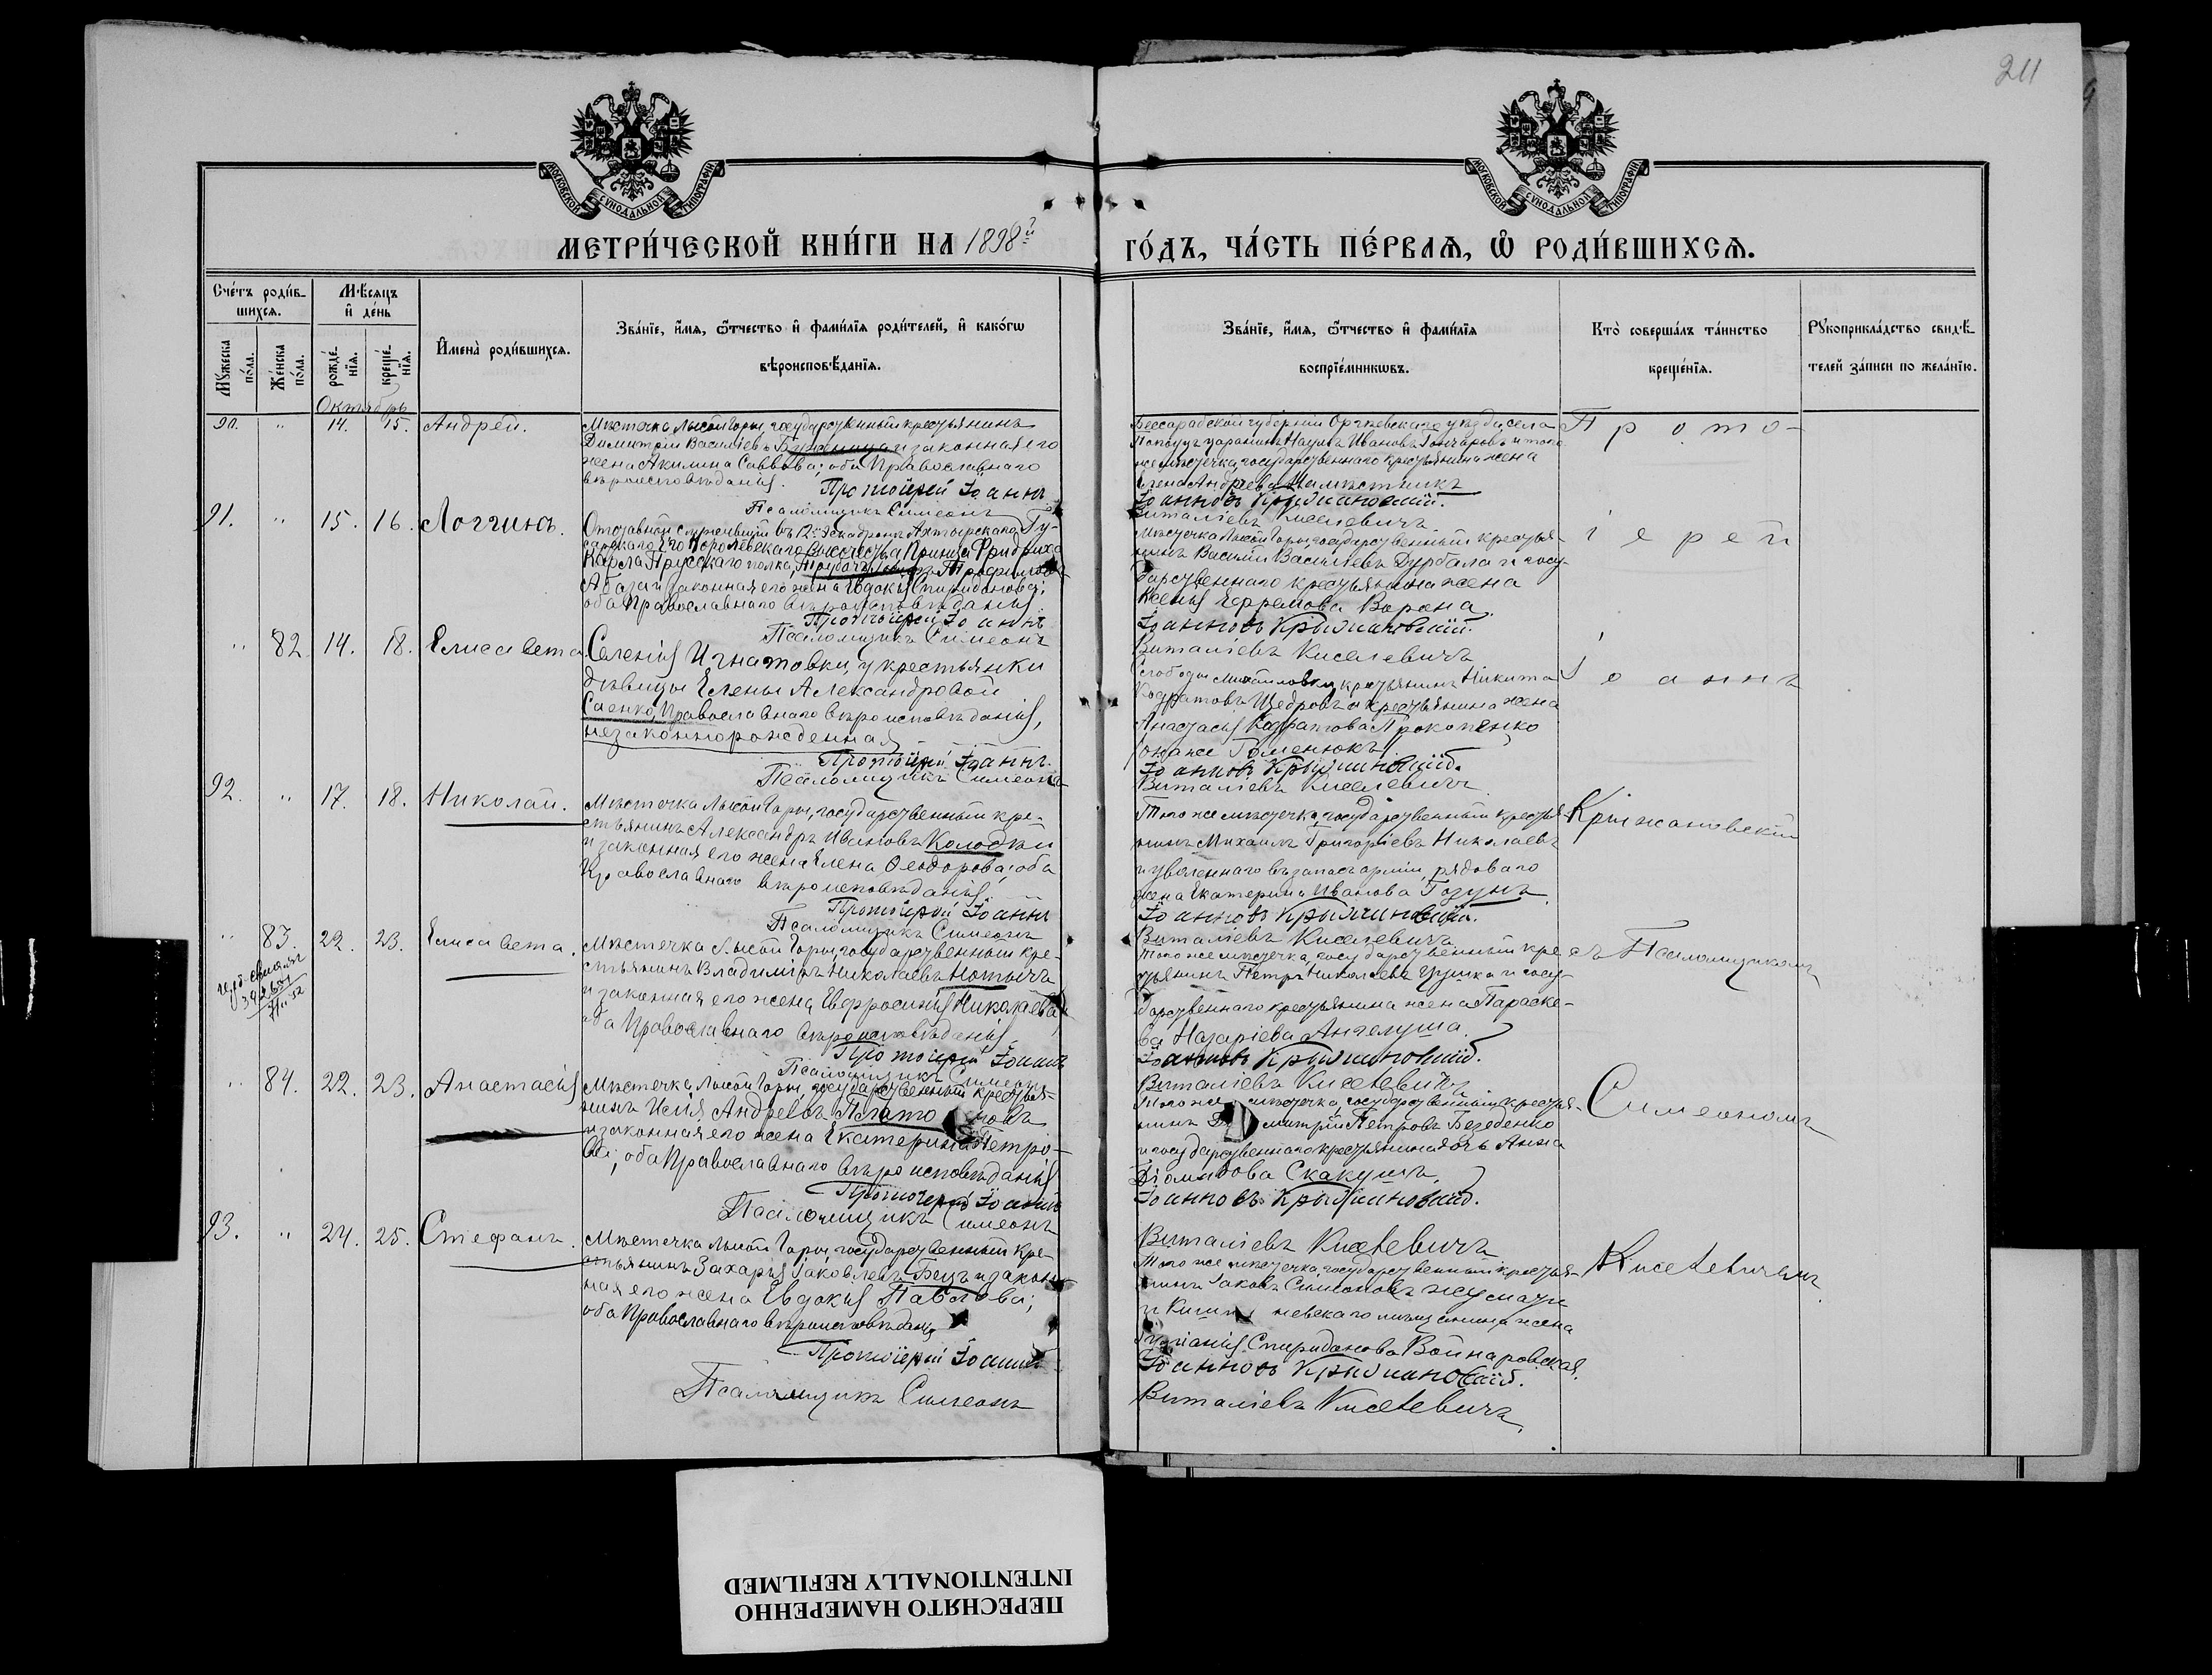 211
МОСКОВСКОЙ СѴНОДАЛЬНОЙ ТИПОГРАФІИ
МОСКОВСКОЙ СѴНОДАЛЬНОЙ ТИПОГРАФІИ
МЕТРИ́ЧЕСКОЙ КНИ́ГИ НА 1898й
ГО́ДЪ, ЧА́СТЬ ПЕ́РВАЯ, Ѡ҆ РОДИ́ВШИХСЯ.
Сче́тъ роди́в-
шихся.
Мꙋ́жеска по́ла.
Же́нска по́ла.
Мѣ́сяцъ
и҆ де́нь
рожде́-
нїя.
креще́-
нїя.
И҆мена̀ роди́вшихся.
Зва́нїе, и҆́мя, ѻ҆́тчество и҆ фами́лїя роди́телей, и҆ како́гѡ
вѣроисповѣ́данїя.
Зва́нїе, и҆́мя, ѻ҆́тчество и҆ фами́лїя
воспрїе́мникѡвъ.
Кто̀ соверша́лъ та́инство
креще́нїя.
Рꙋкоприкла́дство свидѣ́-
телей за́писи по жела́нїю.
Октябрь
90. " 14. 15. Андрей.
Мѣстечка Лысой Горы, государственный крестьянинъ
Димитрій Василіевъ и законная его
жена Акилина Саввова; оба Православнаго
вѣроисповѣданія.
Протоіерей Іоаннъ
Псаломщикъ Симеонъ
Бессарабской губерніи Оргѣевскаго уѣзда, села
царанинъ Наумъ Ивановъ Гончаровъ и того
же мѣстечка, государственнаго крестьянина жена
Елена Андреева Намѣстникъ
Іоанновъ Крыжановскій.
Виталіевъ Киселевичъ
91. " 15. 16. Логгинъ.
Отставной служившій въ 12м Эскадронѣ Ахтырскаго Гу-
сарскаго Его Королевскаго Высочества Принца Фридриха
Карла Прусскаго полка, Трубачъ Трофимовъ
Абаза и законная его жена Евдокія Спиридонова;
оба Православнаго вѣроисповѣданія.
Протоіерей Іоаннъ
Псаломщикъ Симеонъ
Мѣстечка Лысой Горы, государственный крестья-
нинъ Василій Василіевъ Дурбала и госу-
дарственнаго крестьянина жена
Ксенія Ефремова Ворона.
Іоанновъ Крыжановскій.
Виталіевъ Киселевичъ
" 82. 14. 18. Елисавета.
Селенія Игнатовки, у крестьянки
дѣвицы Елены Александровой
Саенко, Православнаго вѣроисповѣданія,
незаконнорожденная
Протоіерей Іоаннъ
Псаломщикъ Симеонъ
Слободы Михайловки, крестьянинъ Никита
Кодратовъ Щедровъ и крестьянина жена
Анастасія Кодратова Прокопенко
она же Гоменюкъ
Іоанновъ Крыжановскій.
Виталіевъ Киселевичъ
92. " 17. 18. Николай.
Мѣстечка Лысой Горы, государственный кре-
стьянинъ Александръ Ивановъ Колодѣи
и законная его жена Елена Ѳеодорова; оба
Православнаго вѣроисповѣданія
Протоіерей Іоаннъ
Псаломщикъ Симеонъ
Того же мѣстечка, государственный крестья-
нинъ Михаилъ Григоріевъ Николаевъ
и уволеннаго въ запасъ арміи, рядоваго
жена Екатерина Иванова Гозунъ
Іоанновъ Крыжановскій.
Виталіевъ Киселевичъ
" 83. 22. 23. Елисавета.
Мѣстечка Лысой Горы, государственный кре-
стьянинъ Владиміръ Николаевъ
и законная его жена Евфросинія Николаева
оба Православнаго вѣроисповѣданія
Протоіерей Іоаннъ
Псаломщикъ Симеонъ
Того же мѣстечка, государственный кре-
стьянинъ Петръ Николаевъ и госу-
дарственнаго крестьянина жена Параске-
ва Назаріева Ангелуша
Іоанновъ Крыжановскій.
Виталіевъ Киселевичъ
" 84. 22. 23. Анастасія
Мѣстечка Лысой Горы, государственный крестья-
нинъ Исаія Андреевъ Плато новъ
и законная его жена Екатерина Петро-
ва; оба Православнаго вѣроисповѣданія
Протоіерей Іоаннъ
Псаломщикъ Симеонъ
Того же мѣстечка, государственный крестья-
нинъ Димитрій Петровъ Безеденко
и государственнаго крестьянина дочь Анна
Діомидова Скакунъ
Іоанновъ Крыжановскій.
93. " 24. 25. Стефанъ.
Мѣстечка Лысой Горы, государственный кре-
стьянинъ Захарія Іаковлевъ Бецъ и закон-
ная его жена Евдокія Павлова;
оба Православнаго вѣроисповѣданія
Протоіерей Іоаннъ
Псаломщикъ Симеонъ
Виталіевъ Киселевичъ
Того же мѣстечка, государственный крестья-
нинъ Іаковъ Симоновъ
и Кишиневскаго мѣщанина жена
Спиридонова Войнаровская.
Іоанновъ Крыжановскій.
Виталіевъ Киселевичъ
Прото-
іерей
Іоаннъ
Крыжановскій
съ Псаломщикомъ
Симеономъ
Киселевичемъ.
ПЕРЕСНЯТО НАМЕРЕННО
INTENTIONALLY REFILMED